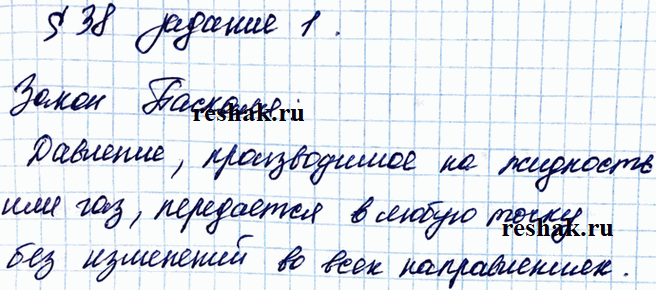 § 38 задание 1.
Закон Паскаля:
reshak.ru
Давление, производимое на жидкость
или газ, передается в любую точку
reshak.ru
без изменений во всех направлениях.